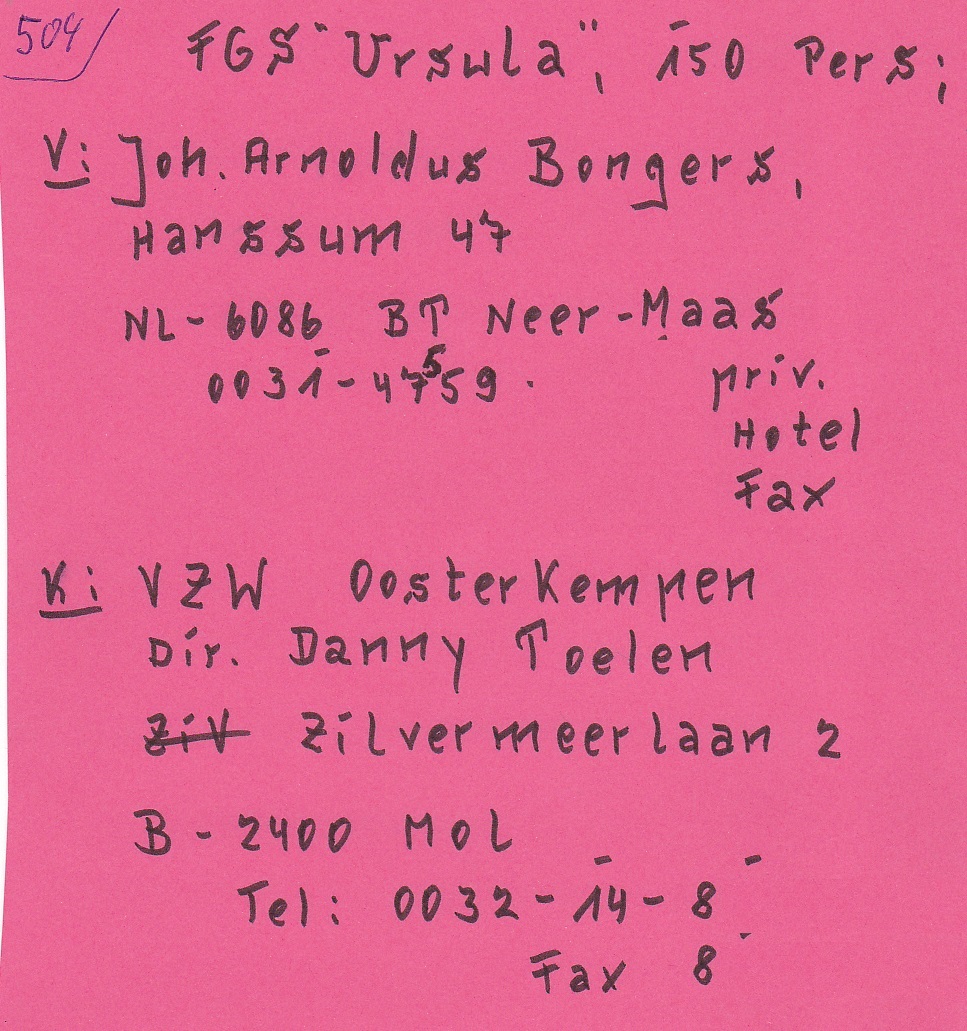 504/
FGS "Ursula", 150 Pers;
V: Joh. Arnoldus Bongers,
Hanssum 47
NL-6086 BT Neer-Maas
0031-47559. priv.
Hotel
Fax
K: VZW OosterKempen
Dir. Danny Toelen
ZiV Zilvermeerlaan 2
B-2400 Mol
Tel: 0032-14-8
Fax 8